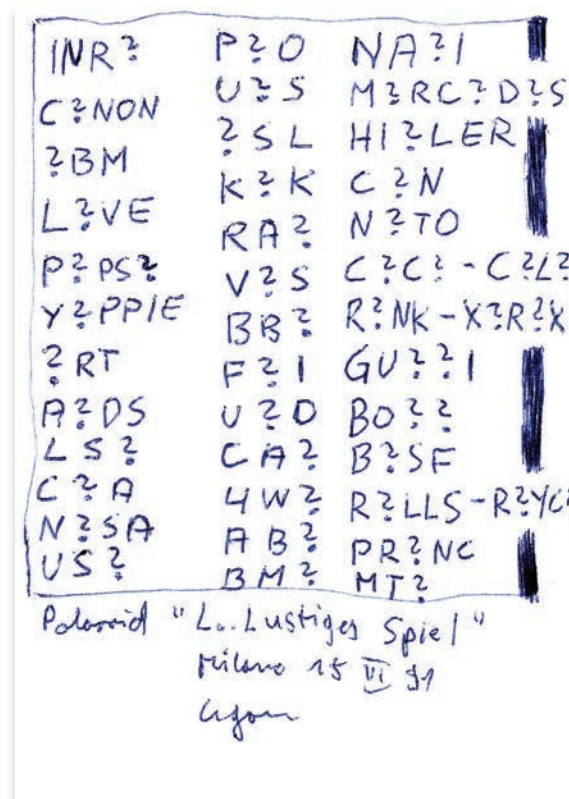 INR?
C?NON
?BM
L?VE
P?PS?
Y?PPIE
?RT
A?DS
LS?
C?A
N?SA
US?
P?O
U?S
?SL
K?K
RA?
V?S
BB?
F?I
U?O
CA?
4W?
AB?
BM?
NA?I
M?RC?D?S
HI?LER
C?N
N?TO
C?C?-C?L?
R?NK-X?R?X
GU??I
BO??
B?SF
R?LLS-R?YC
PR?NC
MT?
Polaroid "L..Lustiges Spiel"
Milano 15 VI 91